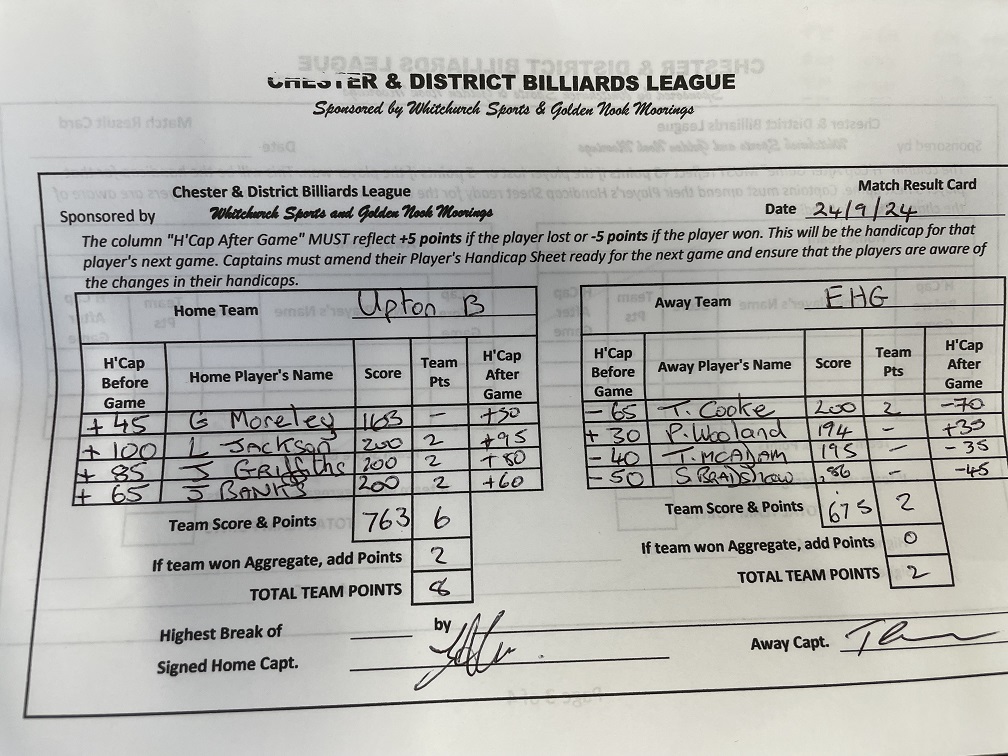 CHESTER & DISTRICT BILLIARDS LEAGUE
Sponsored by Whitchurch Sports & Golden Nook Moorings
Chester & District Billiards League Match Result Card
Sponsored by Whitchurch Sports and Golden Nook Moorings Date 24/9/24
The column "H'Cap After Game" MUST reflect +5 points if the player lost or -5 points if the player won. This will be the handicap for that
player's next game. Captains must amend their Player's Handicap Sheet ready for the next game and ensure that the players are aware of
the changes in their handicaps.
Home Team Upton B
H'Cap Before Game Home Player's Name Score Team Pts H'Cap After Game
+ 45 G Moreley 163 - +50
+ 100 L JACKSON 200 2 +95
+ 85 J GRIFFITHS 200 2 +80
+ 65 J BANKS 200 2 +60
Team Score & Points 763 6
If team won Aggregate, add Points 2
TOTAL TEAM POINTS 8
Away Team EHG
H'Cap Before Game Away Player's Name Score Team Pts H'Cap After Game
- 65 T. Cooke 200 2 -70
+ 30 P. Wooland 194 - +35
- 40 T. MCADAM 195 - -35
- 50 S BRADSHAW 86 - -45
Team Score & Points 675 2
If team won Aggregate, add Points 0
TOTAL TEAM POINTS 2
Highest Break of by
Signed Home Capt. Away Capt.